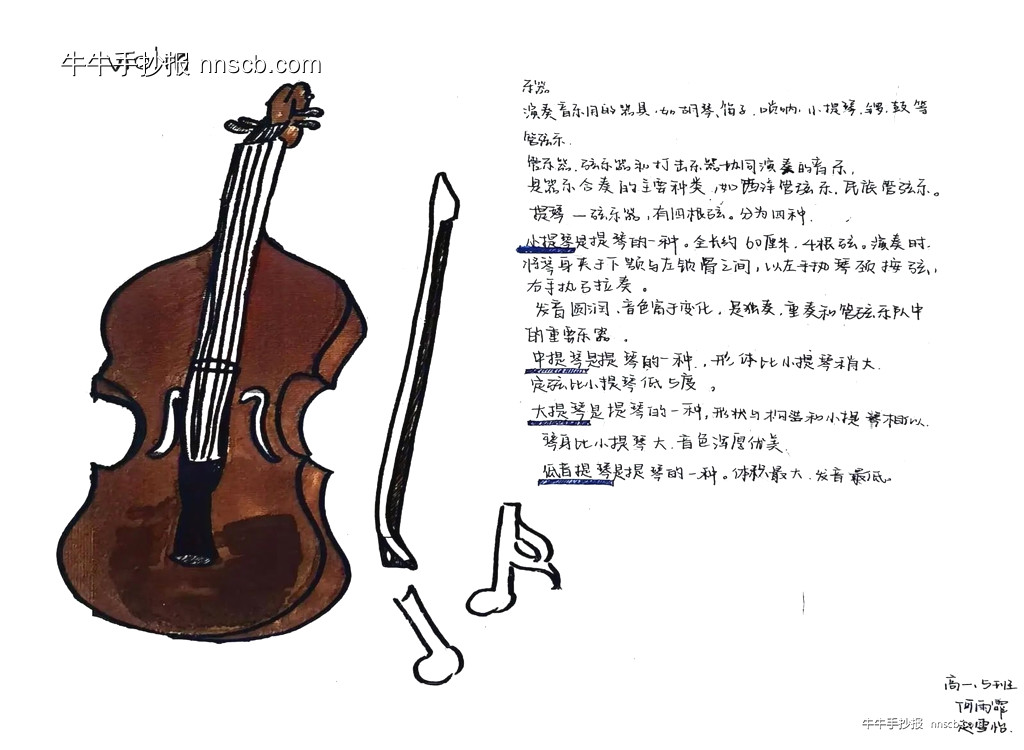 牛牛手抄报 nnscb.com
乐器
演奏音乐用的器具.如胡琴、笛子、唢呐、小提琴、锣、鼓等
管弦乐.
管乐器、弦乐器和打击乐器协同演奏的音乐,
是器乐合奏的主要种类,如西洋管弦乐、民族管弦乐。
提琴一弦乐器,有四根弦。分为四种.
小提琴是提琴的一种。全长约60厘米.4根弦。演奏时.
将琴身夹于下颚与左锁骨之间,以左手执琴颈按弦,
右手执弓拉奏。
发音圆润、音色富于变化,是独奏,重奏和管弦乐队中
的重要乐器。
中提琴是提琴的一种.,形体比小提琴稍大.
定弦比小提琴低5度。
大提琴是提琴的一种,形状与构造和小提琴相似.
琴身比小提琴大.音色浑厚优美.
低音提琴是提琴的一种。体积最大.发音最低。
高一、5班
雨霏
牛牛手抄报 nnscb.com
赵雪怡.